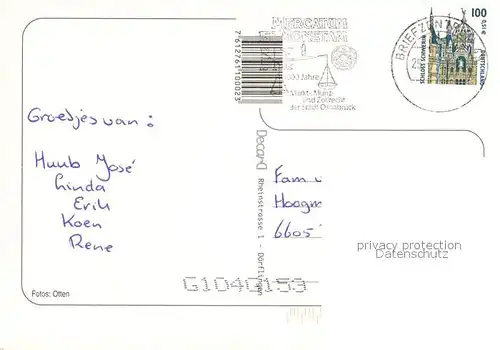 MERCATUM
ET MONETAM
1000 Jahre
Markt-, Münz-
und Zollrecht
der Stadt Osnabrück
BRIEFZENTRUM
100
0,51€
SCHLOSS SCHWERIN
DEUTSCHLAND
7612761100023
Groetjes van:
Huub José
Linda
Erik
Koen
Rene
Decard Rheinstrasse 1 - Dörflingen
Fam
Hoogm
6605
privacy protection
Datenschutz
G104G153
Fotos: Otten